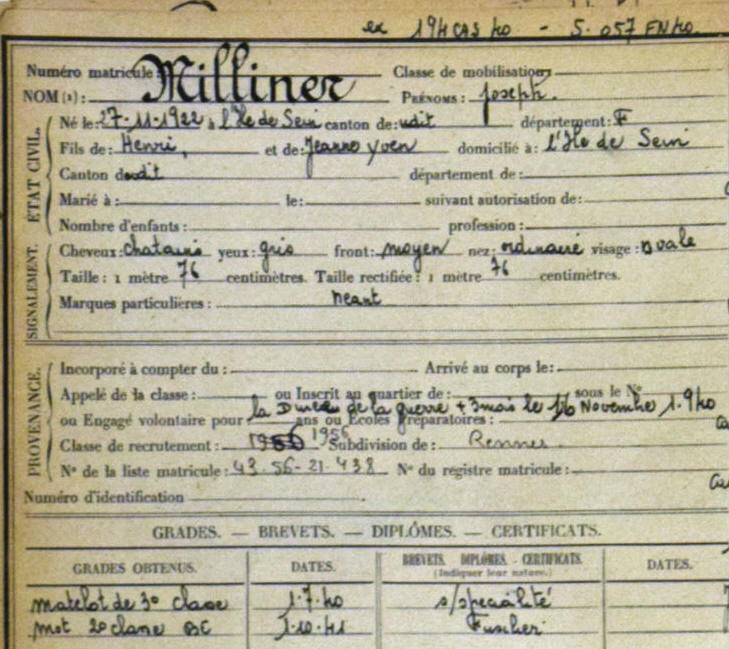 ex 194 CAS 40 - S. 057 FN 40.
Numéro matricule: Classe de mobilisation
NOM (1): Milliner PRÉNOMS: Joseph.
Né le: 27-11-1922 à l'Ile de Sein canton de: udit département: F
Fils de: Henri, et de: Jeanne Yven domicilié à: l'Ile de Sein
Canton de udit département de:
Marié à: le: suivant autorisation de:
Nombre d'enfants: profession:
ÉTAT CIVIL.
Cheveux: chatains yeux: gris front: moyen nez: ordinaire visage: ovale
Taille: 1 mètre 76 centimètres. Taille rectifiée: 1 mètre 76 centimètres.
Marques particulières: neant
SIGNALEMENT.
Incorporé à compter du: Arrivé au corps le:
Appelé de la classe: ou Inscrit au quartier de: sous le N°
la Durée de la guerre + 3 mois le 16 Novembre 1.940
ou Engagé volontaire pour ans ou Écoles préparatoires:
Classe de recrutement: 1956 Subdivision de: Rennes
N° de la liste matricule: 43-56-21-438 N° du registre matricule:
PROVENANCE.
Numéro d'identification
GRADES. — BREVETS. — DIPLÔMES. — CERTIFICATS.
GRADES OBTENUS. DATES. BREVETS. DIPLÔMES. - CERTIFICATS. DATES.
(Indiquer leur nature.)
matelot de 3e classe 1.7.40 s/spécialité
mot 2e classe BE 1.10.41 Fusilier